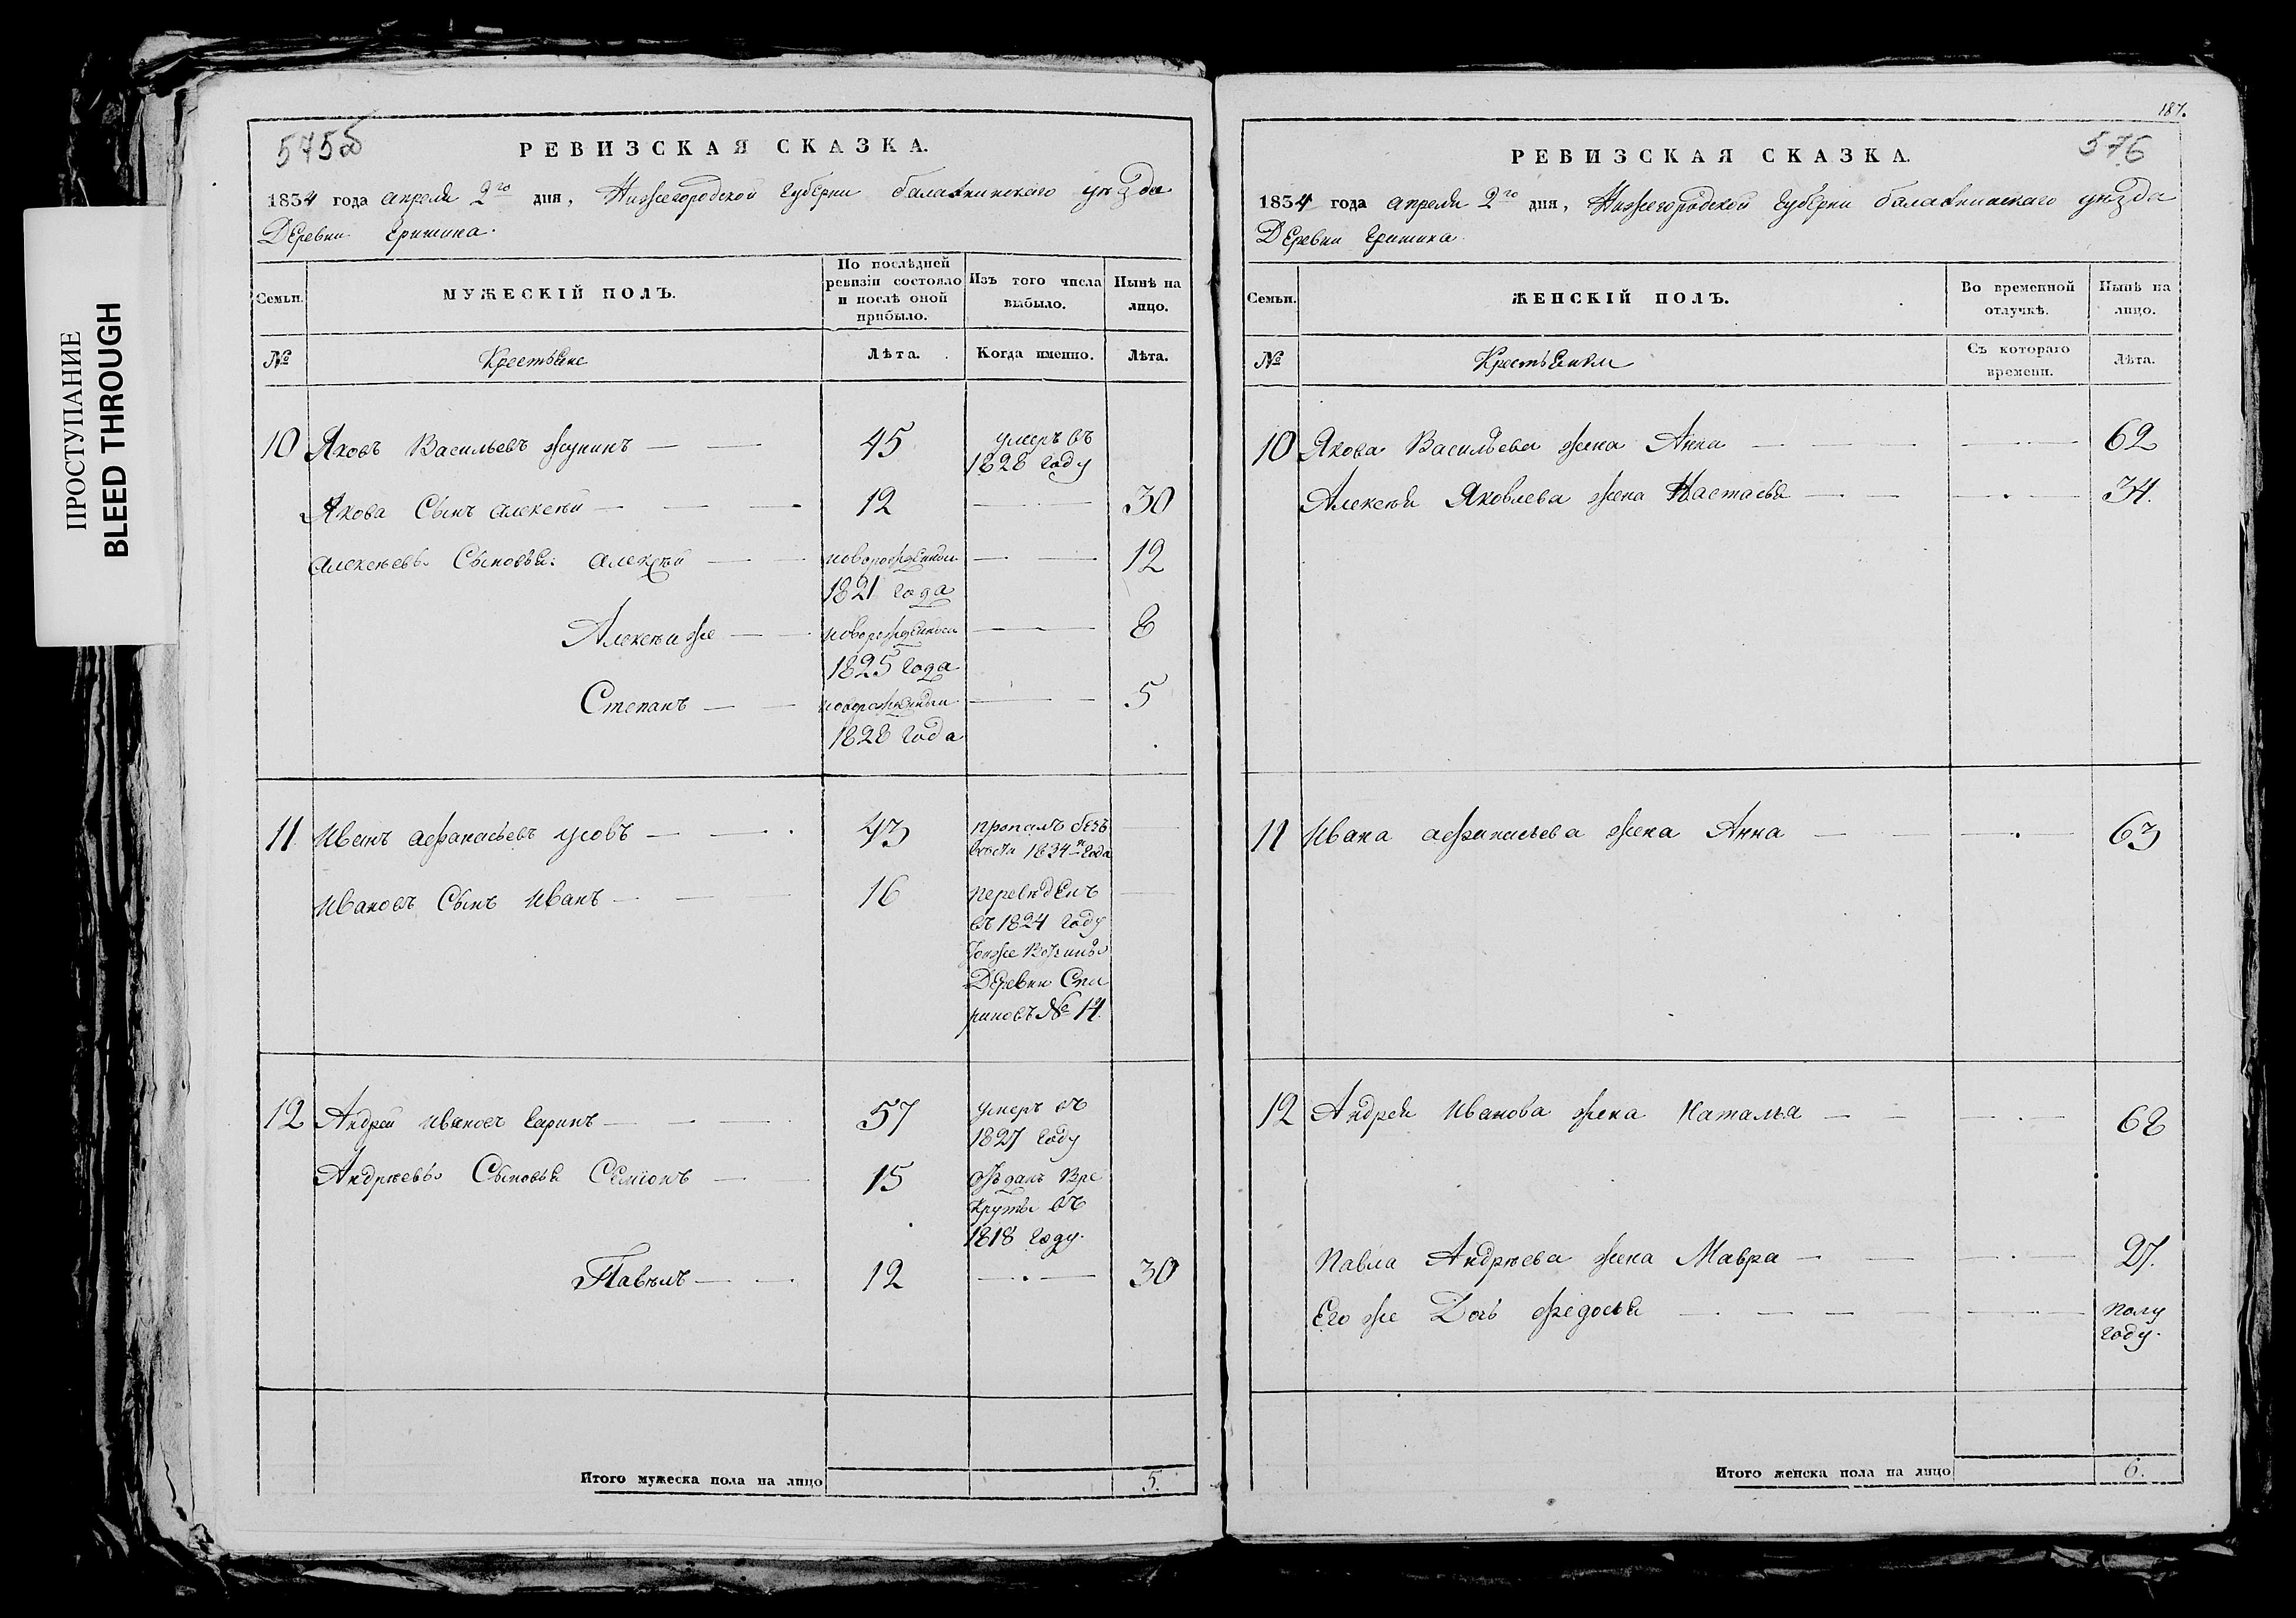 ПРОСТУПАНИЕ
BLEED THROUGH
575
РЕВИЗСКАЯ СКАЗКА.
1834 года апреля 2го дня, Нижегородской губерни балахнинскаго уѣзда
Деревни гришина.
Семьи.
МУЖЕСКІЙ ПОЛЪ.
По послѣдней ревизіи состояло и послѣ оной прибыло.
Изъ того числа выбыло.
Нынѣ на лицо.
№
Крестьяне
Лѣта.
Когда именно.
Лѣта.
10 Яковъ Васильевъ жунинъ — — 45 умеръ въ
1828 году
Якова Сынъ алексѣй — — — 12 — — 30
алексѣевы Сыновья: алексѣй — — новорожденныи — — 12
1821 года
Алексѣи же — — новорожденныи — — 8
1825 года
Степанъ — — новорожденныи — — 5
1828 года
11 Иванъ афанасьевъ усовъ — — 43 пропалъ безъ
1834 года
Ивановъ Сынъ Иванъ — — — 16 переведенъ
въ 1824 году
Деревни Спи
риновъ № 14.
12 Андрей ивановъ — — — 57 умеръ въ
1827 году
Андрѣевы Сыновья Семіонъ — — 15 отъданъ вре
круты въ
1818 году.
Павелъ — — 12 — — 30
Итого мужеска пола на лицо 5.
187.
576
РЕВИЗСКАЯ СКАЗКА.
1834 года апреля 2го дня, Нижегородской губерни балахнинскаго уѣзда
Деревни гришина
Семьи.
ЖЕНСКІЙ ПОЛЪ.
Во временной отлучкѣ.
Нынѣ на лицо.
№
Крестьянки
Съ котораго времени.
Лѣта.
10 Якова Васильева жена Анна — — — 62
Алексѣя Яковлева жена Настасья — — — 34.
11 Ивана афанасьева жена Анна — — — 63
12 Андрея Иванова жена Наталья — — — 68
Павла Андрѣева жена Мавра — — — 27.
Его же Дочь Федосья — — — полу
году.
Итого женска пола на лицо 6.